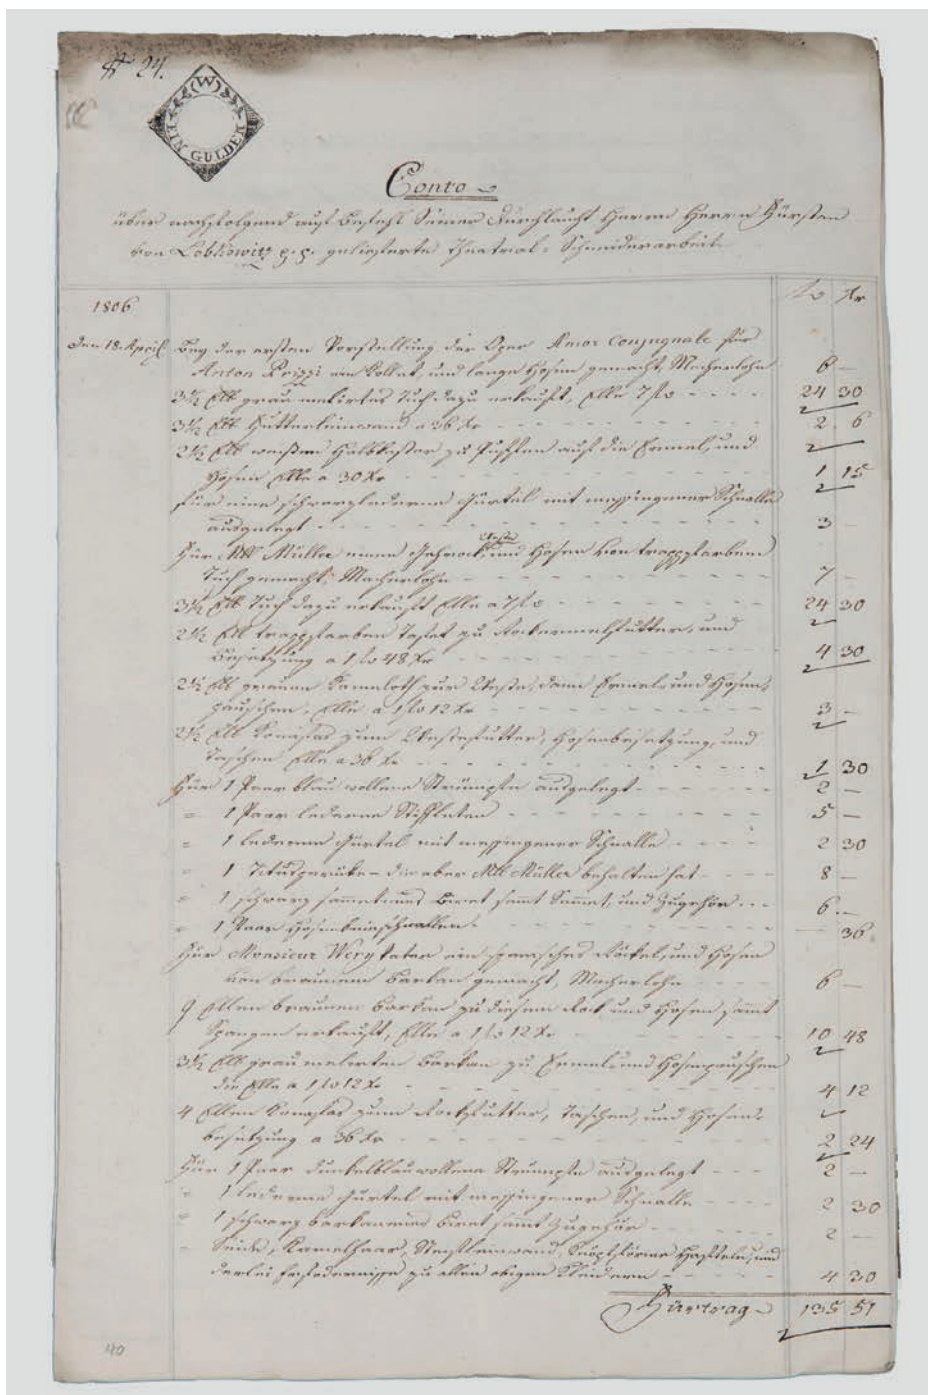 No 24.
W
EIN GULDEN
Conto
über nachfolgend auf Befehl Seiner Durchlaucht Herrn Herrn Fürsten
von Lobkowitz p. p. gelieferte Theatral-Schneiderarbeit.
fl xr
1806
Den 18. April. Bey der ersten Vorstellung der Oper Amor conjugnale für
Anton Prizzi ein Collet, und lange Hosen gemacht, Macherlohn 6 —
3 1/2 Ell grau melirtes Tuch dazu erkauft, Elle 7 fl 24 30
3 1/2 Ell Futterleinwand a 36 xr 2 6
2 1/2 Ell weißen Halbkaster zu Puffen auf die Ermel, und
Hosen Elle a 30 xr 1 15
für eine schwarzlederne Gürtel mit messingener Schnalle
ausgelegt 3 —
Für Mlle Müller einen Gehrock, Weste und Hosen von trappfarbenen
Tuch gemacht, Macherlohn 7 —
3 1/2 Ell Tuch dazu erkauft Elle a 7 fl 24 30
2 1/2 Ell trappfarben Tafet zu Rockermelfutter, und
Besetzung a 1 fl 48 xr 4 30
2 1/2 Ell grauen Kameloth zur Weste, dann Ermel- und Hosen-
pauschen, Elle a 1 fl 12 xr 3 —
2 1/2 Ell Kanafas zum Westefutter, Hosenbesetzung, und
Taschen Elle a 36 xr 1 30
Für 1 Paar blau wollene Strümpfe ausgelegt 2 —
" 1 Paar lederne Stiffleten 5 —
" 1 lederne Gürtel mit messingener Schnalle 2 30
" 1 Tituspertüke - die aber Mlle Müller behalten hat 8 —
" 1 schwarz sammetnes Biret samt Sammet, und Zugehör 6 —
" 1 Paar Hosenbeinschnallen 36
Für Monsieur Wery Vater ein spanisches Röckel, und Hosen
von braunem Barkan gemacht, Macherlohn 6 —
9 Ellen braunen Barkan zu diesem Rock und Hosen samt
Spangen erkauft, Elle a 1 fl 12 xr 10 48
3 1/2 Ell grau melirten Barkan zu Ermel- und Hosenpauschen
die Elle a 1 fl 12 xr 4 12
4 Ellen Kanafas zum Rockfutter, Taschen, und Hosen-
besetzung a 36 xr 2 24
Für 1 Paar dunkelblauwollene Strümpfe ausgelegt 2 —
" 1 lederne Gürtel mit messingener Schnalle 2 30
" 1 schwarz barkanenes Biret samt Zugehör 2 —
" Seide, Kamelhaar, Steifleinwand, Knöpfformer Hafteln, und
derlei Erfordernisse zu allen obigen Kleidern 4 30
Fürtrag 135 51
40